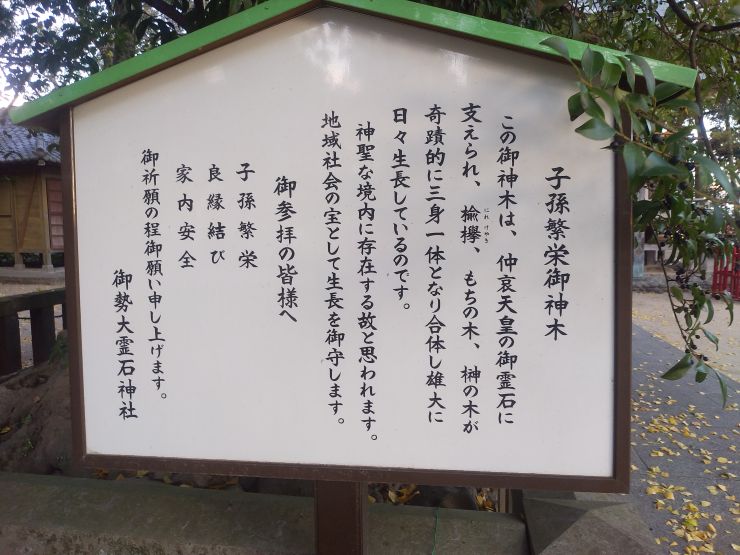 子孫繁栄御神木
この御神木は、仲哀天皇の御霊石に
支えられ、楡欅、もちの木、榊の木が
にれ けやき
奇蹟的に三身一体となり合体し雄大に
日々生長しているのです。
神聖な境内に存在する故と思われます。
地域社会の宝として生長を御守します。
御参拝の皆様へ
子孫繁栄
良縁結び
家内安全
御祈願の程御願い申し上げます。
御勢大霊石神社